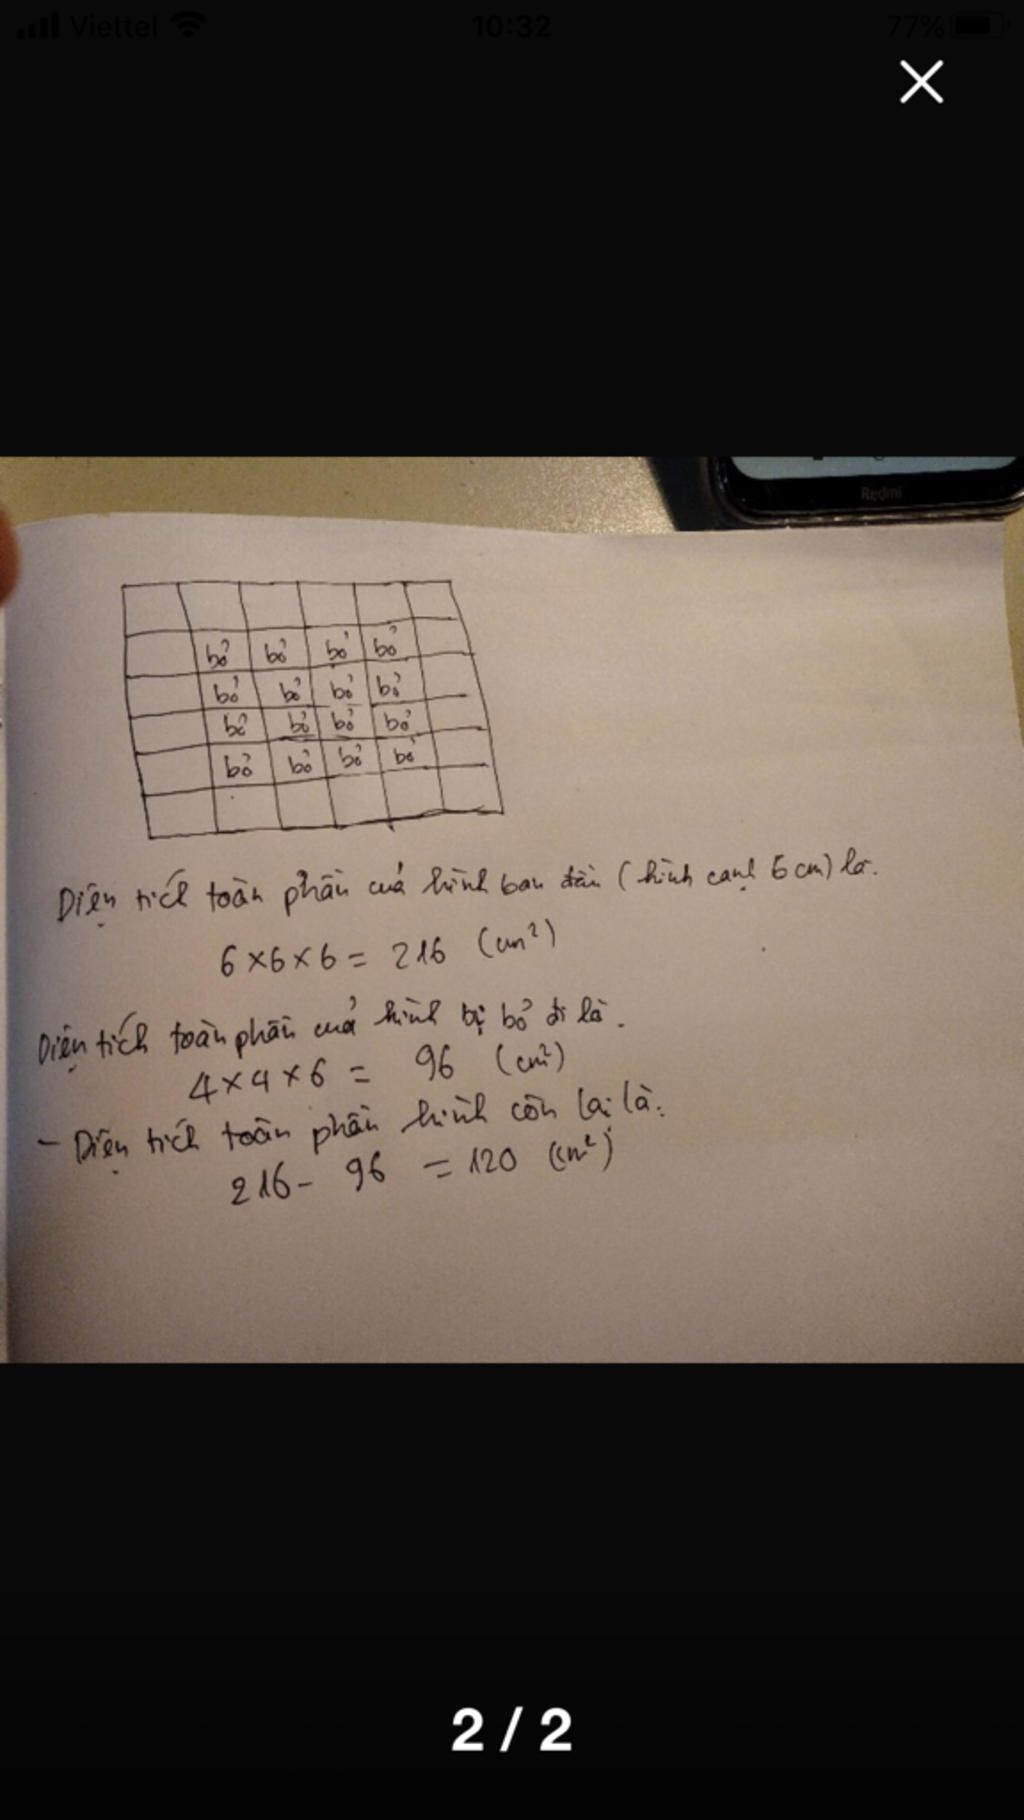 Viettel 10:32 77%
Redmi
bỏ bỏ bỏ bỏ
bỏ bỏ bỏ bỏ
bỏ bỏ bỏ bỏ
bỏ bỏ bỏ bỏ
Diện tích toàn phần của hình ban đầu (hình cạnh 6 cm) là.
6 × 6 × 6 = 216 (cm²)
Diện tích toàn phần của hình bị bỏ đi là.
4 × 4 × 6 = 96 (cm²)
- Diện tích toàn phần hình còn lại là:
216 - 96 = 120 (cm²)
2 / 2